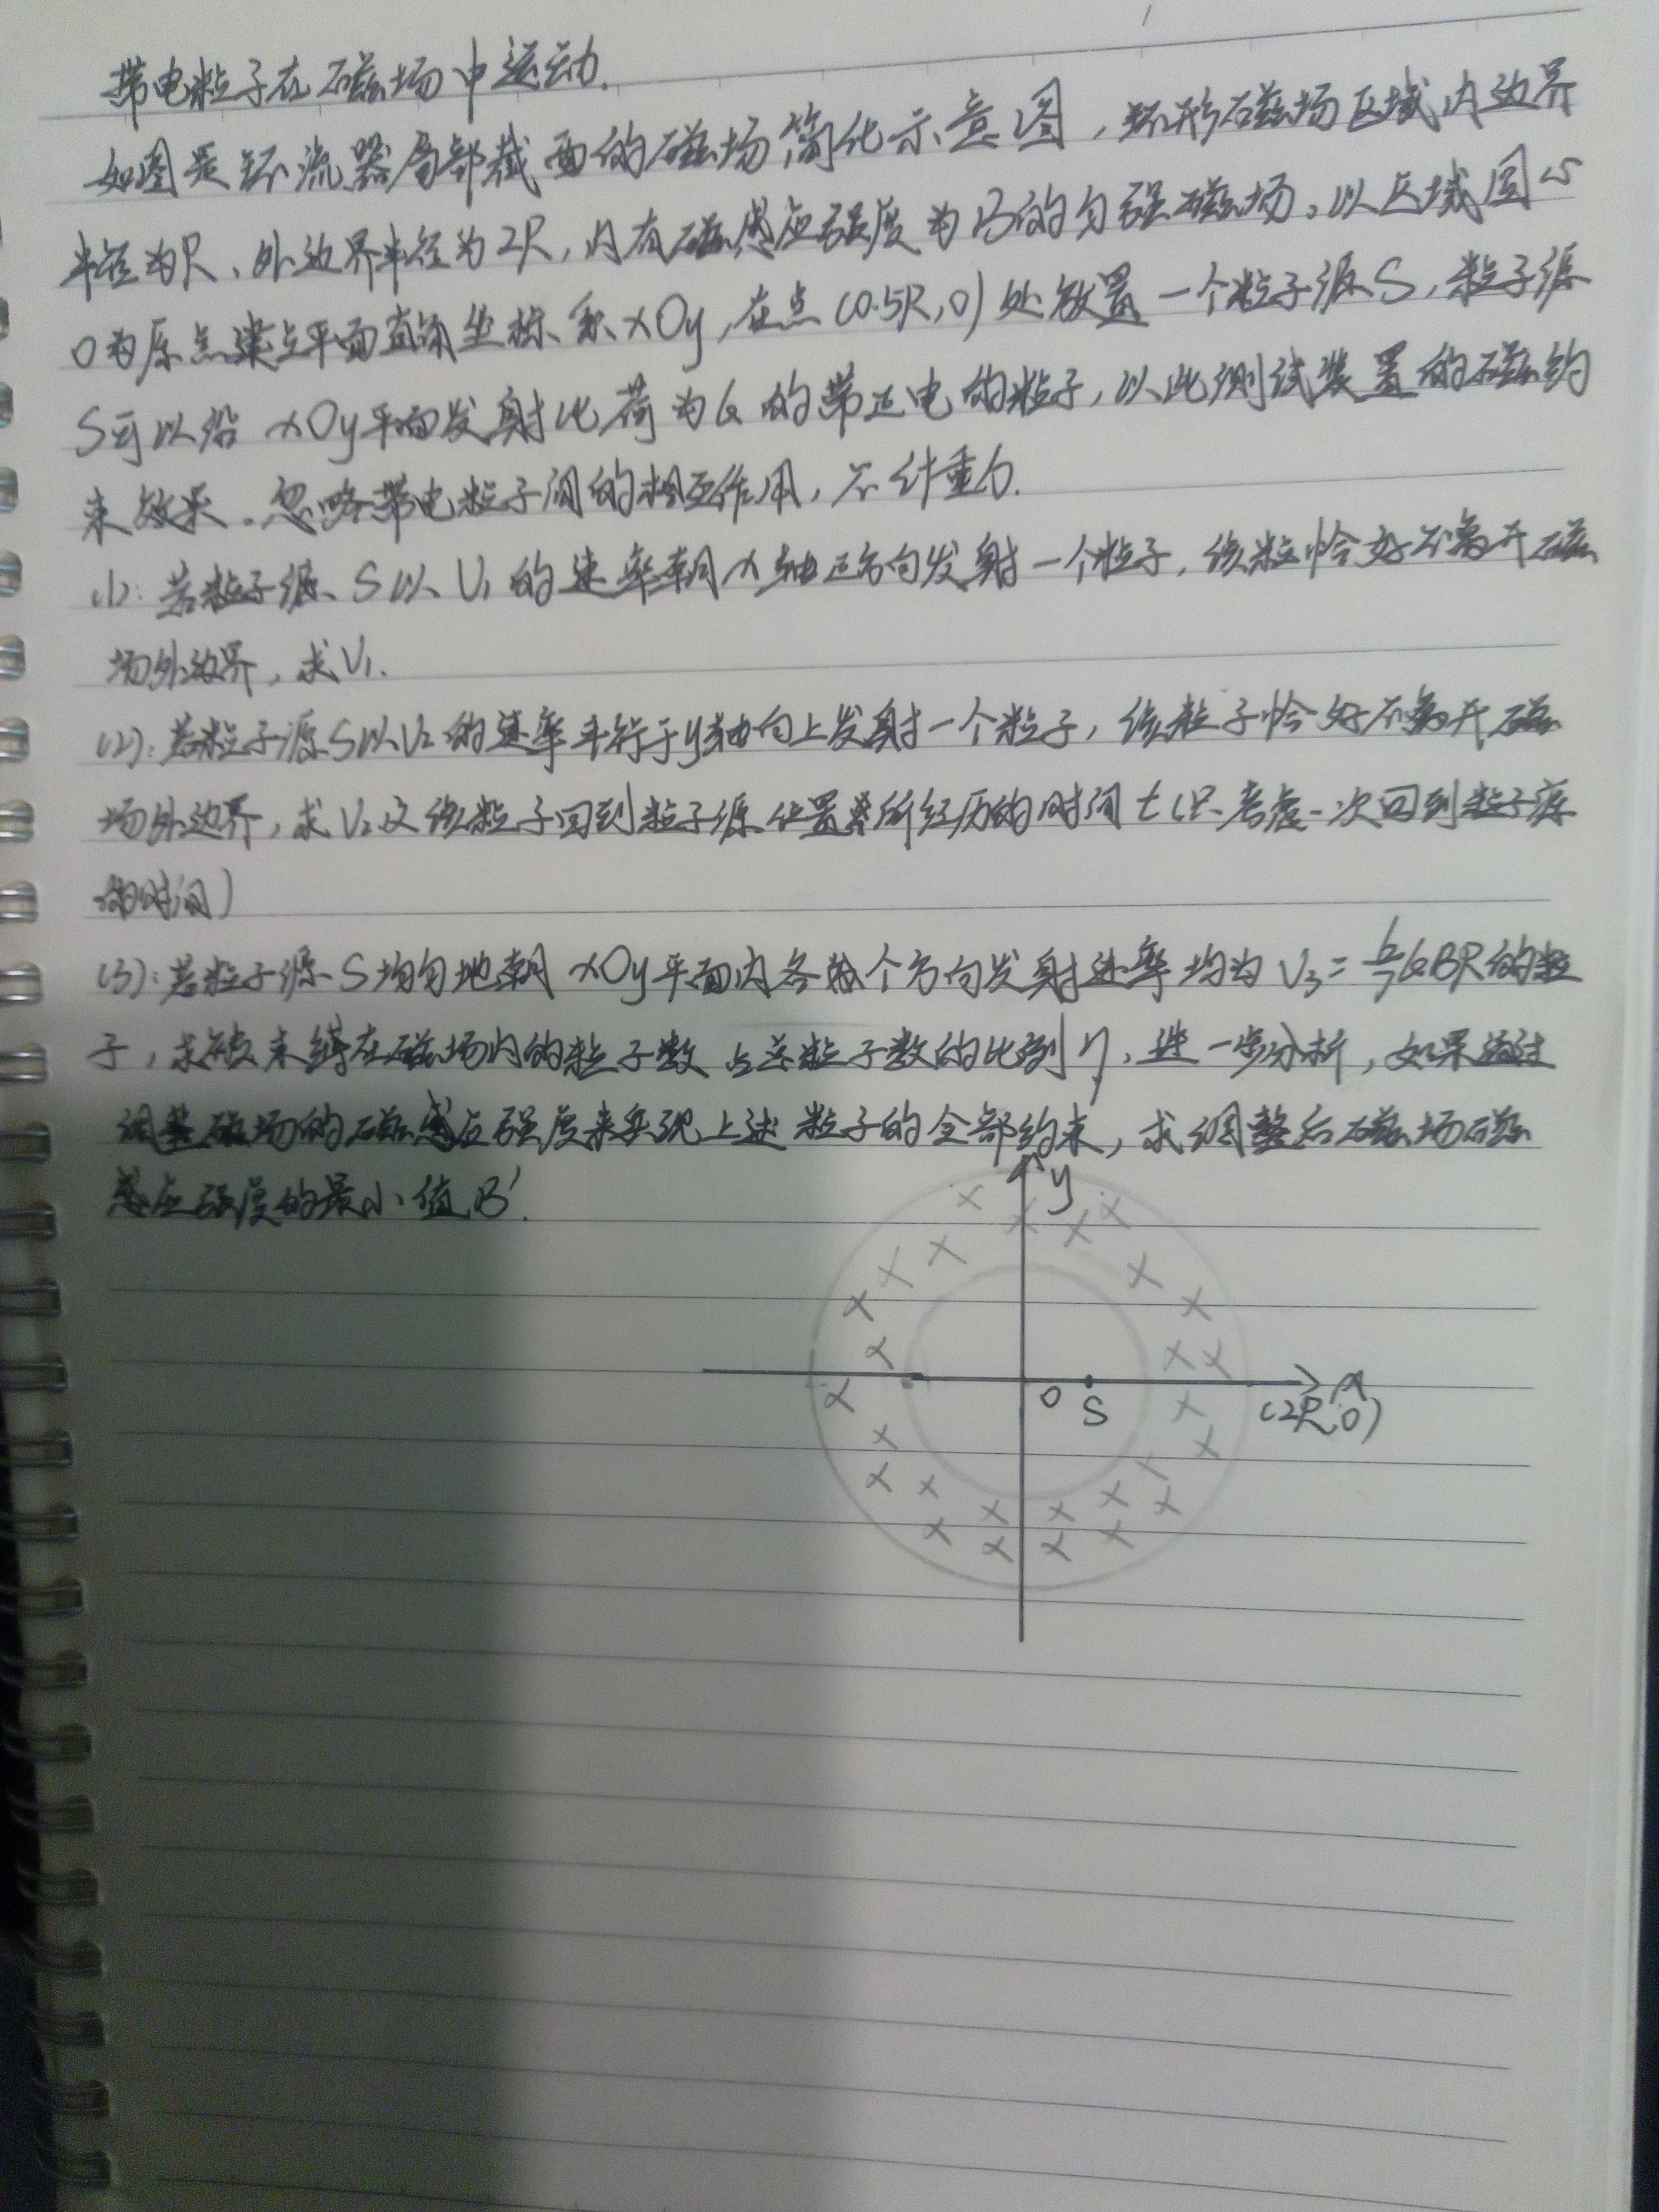 带电粒子在磁场中运动.
如图是环流器局部截面的磁场简化示意图，环形磁场区域内边界
半径为R、外边界半径为2R，内有磁感应强度为B的匀强磁场。以区域圆心
O为原点建立平面直角坐标系xOy，在点(0.5R,0)处放置一个粒子源S，粒子源
S可以沿xOy平面发射比荷为k的带正电的粒子，以此测试装置的磁约
束效果。忽略带电粒子间的相互作用，不计重力.
(1): 若粒子源S以V₁的速率朝x轴正方向发射一个粒子，该粒恰好不离开磁
场外边界，求V₁.
(2): 若粒子源S以V₂的速率平行于y轴向上发射一个粒子，该粒子恰好不离开磁
场外边界，求V₂及该粒子回到粒子源位置所经历的时间t(只考虑一次回到粒子源
的时间)
(3): 若粒子源S均匀地朝xOy平面内各个方向发射速率均为V₃=6/7kBR的粒
子，求被束缚在磁场内的粒子数占总粒子数的比例η，进一步分析，如果通过
调整磁场的磁感应强度来实现上述粒子的全部约束，求调整后磁场磁
感应强度的最小值B′.
y
x
O
S
(2R,0)